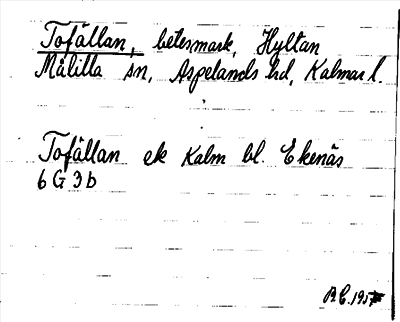 Tofällan, betesmark, Hyltan
Målilla sn, Aspelands hd, Kalmar l.
Tofällan ek Kalm bl. Ekenäs
6 G 3 b
B.C. 1957